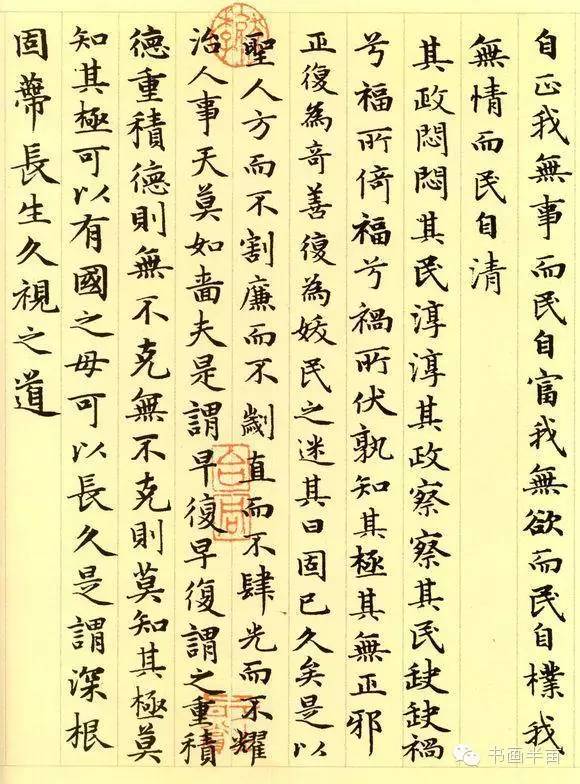 自正我無事而民自富我無欲而民自樸我
無情而民自清
其政悶悶其民淳淳其政察察其民缺缺禍
兮福所倚福兮禍所伏孰知其極其無正邪
正復為奇善復為妖民之迷其日固已久矣是以
聖人方而不割廉而不劌直而不肆光而不耀
治人事天莫如嗇夫是謂早復早復謂之重積
德重積德則無不克無不克則莫知其極莫
知其極可以有國之母可以長久是謂深根
固蔕長生久視之道
书画半亩